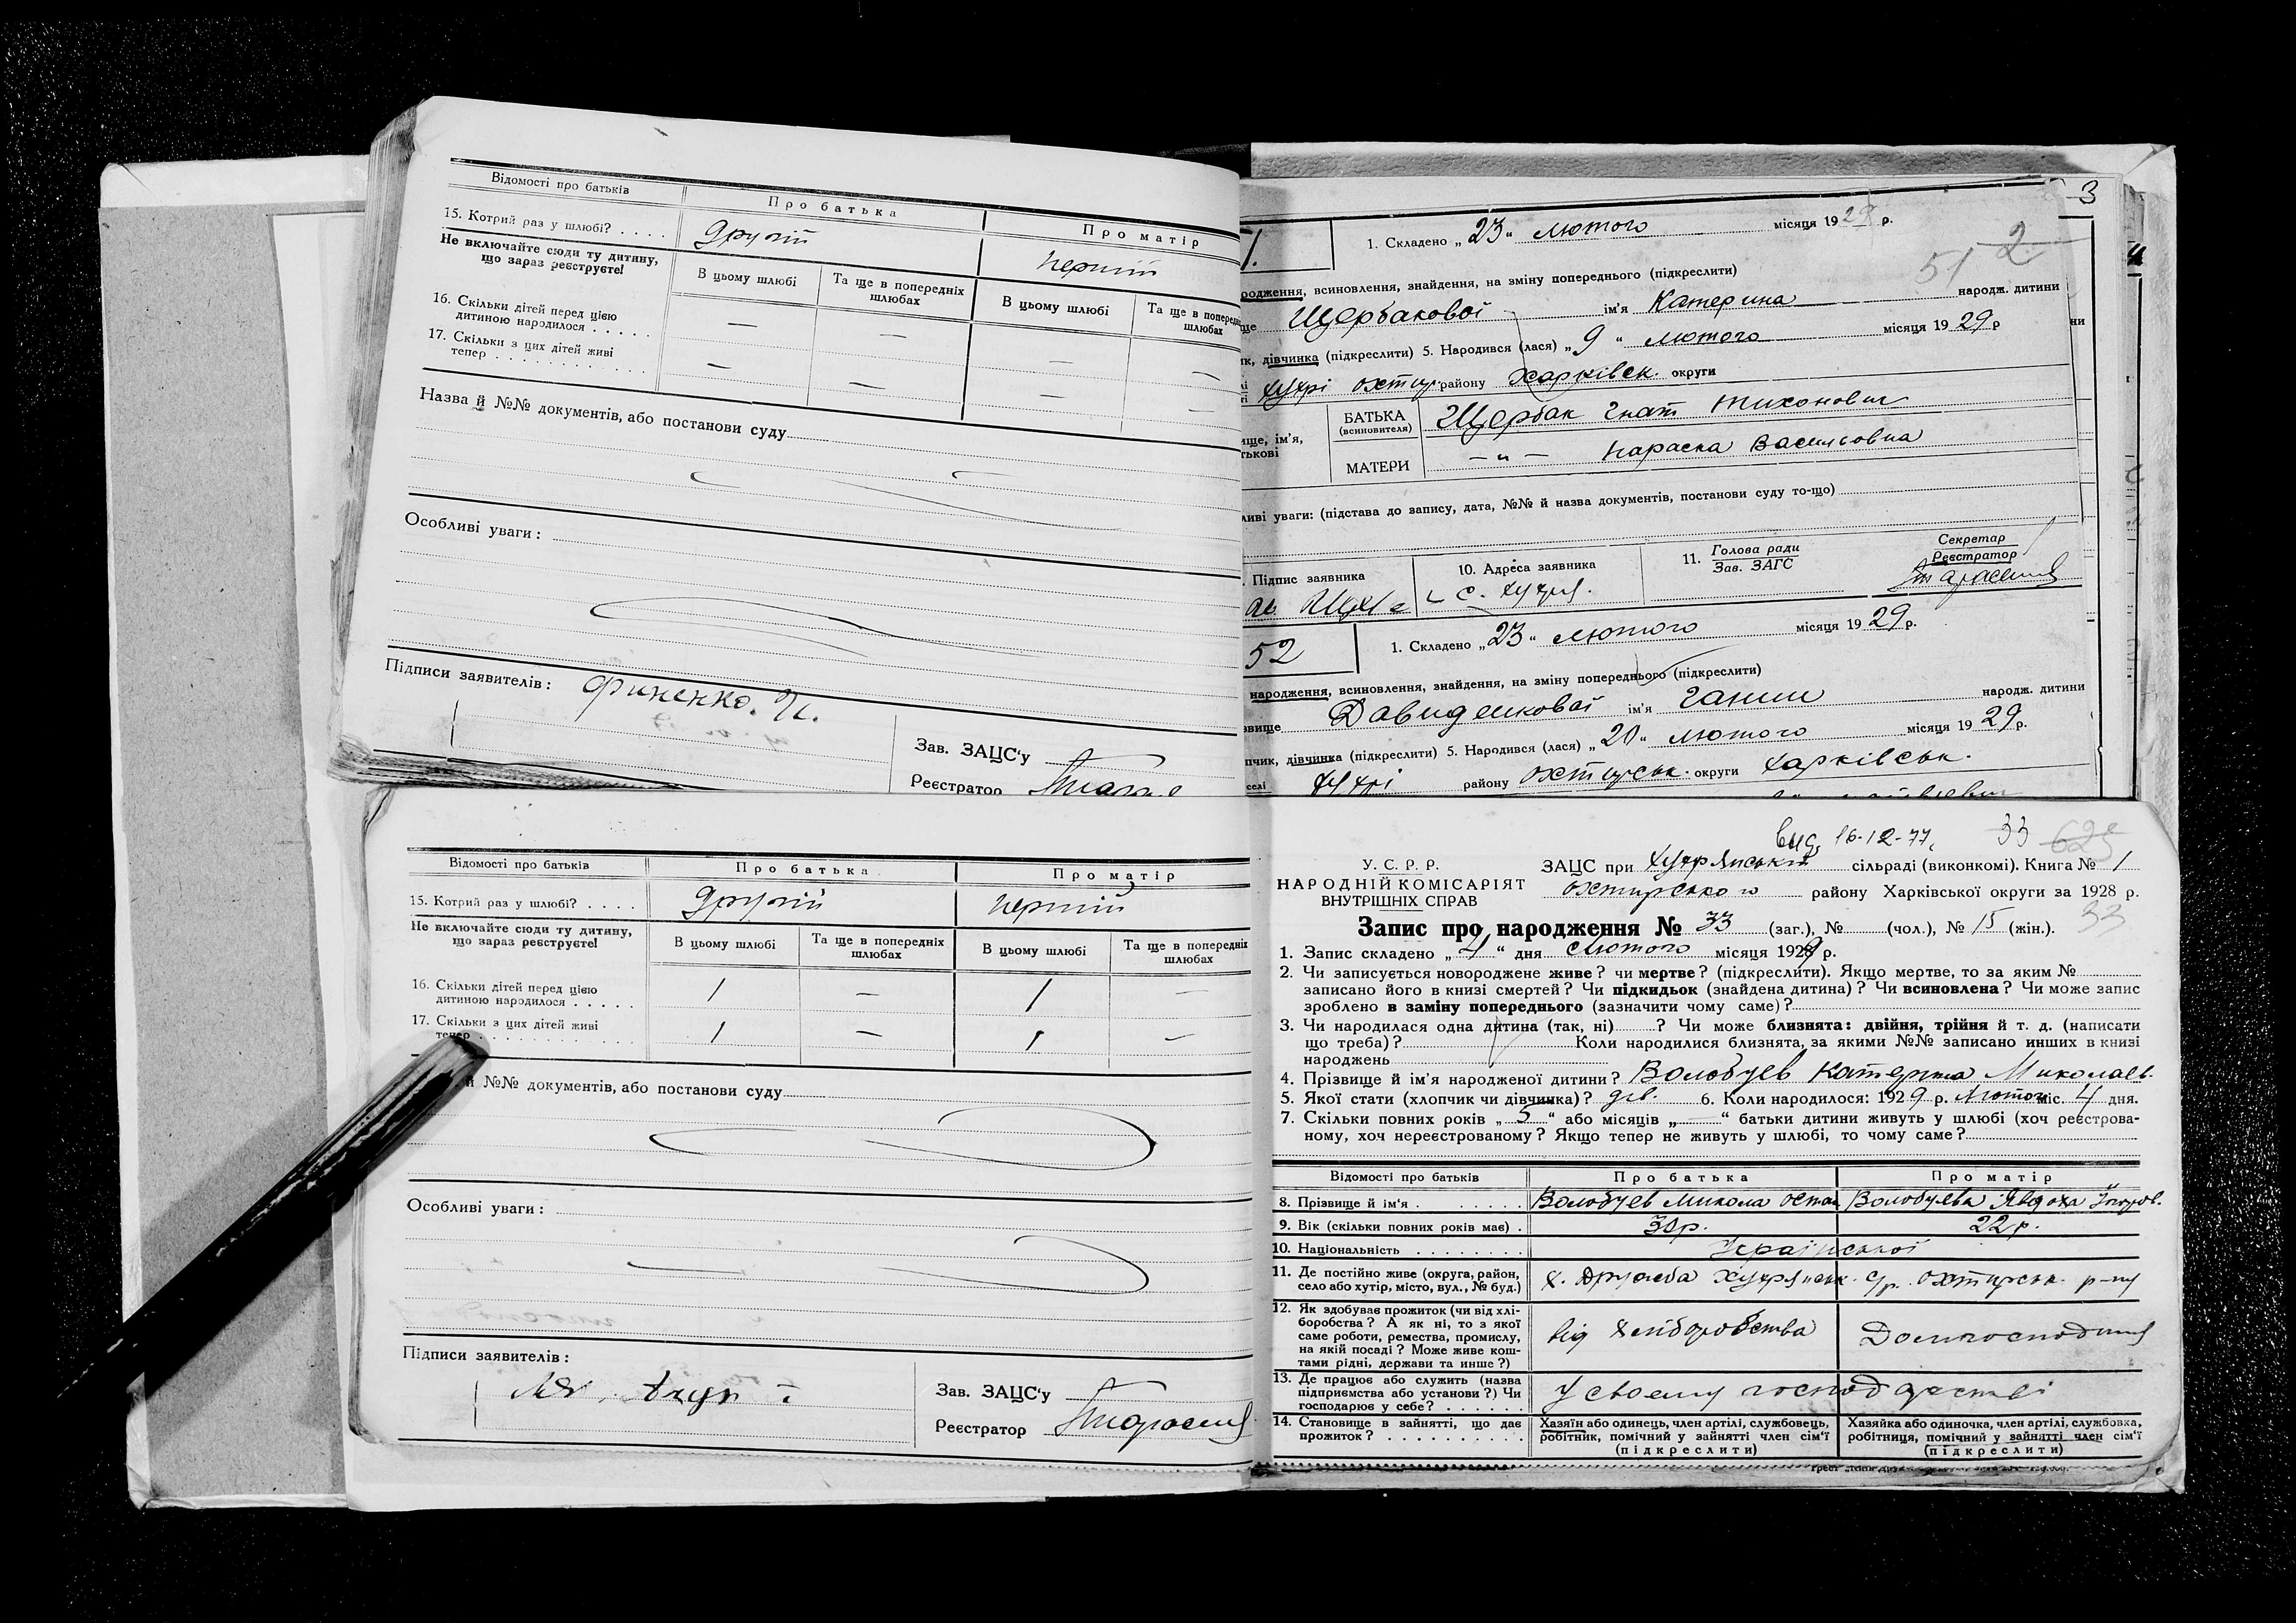 Відомості про батьків
Про батька
Про матір
15. Котрий раз у шлюбі? . . . .
Другий
Перший
Не включайте сюди ту дитину,
що зараз реєструєте!
В цьому шлюбі
Та ще в попередніх
шлюбах
В цьому шлюбі
Та ще в попередні
шлюбах
16. Скільки дітей перед цією
дитиною народилося . . . . .
— — — —
17. Скільки з цих дітей живі
тепер . . . . . . . . . . .
— — — —
Назва й №№ документів, або постанови суду
Особливі уваги:
Підписи заявителів:
Зав. ЗАЦС'у
Реєстратор
3
1.
1. Складено „ 23 “ лютого місяця 1928 р.
51 2
родження, всиновлення, знайдення, на зміну попереднього (підкреслити)
ще Щербакової ім'я Катерина народж. дитини
ик, дівчинка (підкреслити) 5. Народився (лася) „ 9 “ лютого місяця 19 29 р
ни
і Хухрі Охтир. району Харківськ. округи
ище, ім'я,
тькові
БАТЬКА
(всиновителя)
Щербак Гнат Тихонович
МАТЕРИ
— „ — Параска Васильовна
ливі уваги: (підстава до запису, дата, №№ й назва документів, постанови суду то-що)
. Підпис заявника
10. Адреса заявника
с. Хухря.
11. Голова ради
Зав. ЗАГС
Секретар
Реєстратор
52
1. Складено „ 23 “ лютого місяця 19 29 р.
народження, всиновлення, знайдення, на зміну попереднього (підкреслити)
звище Давиденкової ім'я Ганни народж. дитини
пчик, дівчинка (підкреслити) 5. Народився (лася) „ 20 “ лютого місяця 19 29 р.
селі Хухрі району Охтирськ. округи Харківськ.
Відомості про батьків
Про батька
Про матір
15. Котрий раз у шлюбі? . . . .
Другий
Перший
Не включайте сюди ту дитину,
що зараз реєструєте!
В цьому шлюбі
Та ще в попередніх
шлюбах
В цьому шлюбі
Та ще в попередніх
шлюбах
16. Скільки дітей перед цією
дитиною народилося . . . . .
1 — 1 —
17. Скільки з цих дітей живі
тепер . . . . . . . . . . .
1 — 1 —
й №№ документів, або постанови суду
Особливі уваги:
Підписи заявителів:
Зав. ЗАЦС'у
Реєстратор
вид. 16-12-77. 33 625
У. С. Р. Р.
НАРОДНІЙ КОМІСАРІЯТ
ВНУТРІШНІХ СПРАВ
ЗАЦС при Хухрянській сільраді (виконкомі). Книга № 1
Охтирського району Харківської округи за 1928 р.
33
Запис про народження № 33 (заг.), № (чол.), № 15 (жін.).
1. Запис складено „ 4 “ дня Лютого місяця 1929 р.
2. Чи записується новороджене живе? чи мертве? (підкреслити). Якщо мертве, то за яким №
записано його в книзі смертей? Чи підкидьок (знайдена дитина)? Чи всиновлена? Чи може запис
зроблено в заміну попереднього (зазначити чому саме)?
3. Чи народилася одна дитина (так, ні) ? Чи може близнята: двійня, трійня й т. д. (написати
що треба)? Коли народилися близнята, за якими №№ записано инших в книзі
народжень
4. Прізвище й ім'я народженої дитини? Волобуєв Катерина Миколаєв.
5. Якої стати (хлопчик чи дівчинка)? дів. 6. Коли народилося: 192 9 р. Лютого міс. 4 дня.
7. Скільки повних років „ 5 “ або місяців „ — “ батьки дитини живуть у шлюбі (хоч реєстрова-
ному, хоч нереєстрованому? Якщо тепер не живуть у шлюбі, то чому саме?
Відомості про батьків
Про батька
Про матір
8. Прізвище й ім'я . . . . . . . .
Волобуєв Микола Остап
Волобуєва Явдоха
9. Вік (скільки повних років має) .
30 р.
22 р.
10. Національність . . . . . . . .
Української
11. Де постійно живе (округа, район,
село або хутір, місто, вул., № буд.)
х. Дружба Хухрянськ. с/р. Охтирськ. р-ну
12. Як здобуває прожиток (чи від хлі-
боробства? А як ні, то з якої
саме роботи, ремества, промислу,
на якій посаді? Може живе кош-
тами рідні, держави та инше?)
від хліборобства
Домогосподиня
13. Де працює або служить (назва
підприємства або установи?) Чи
господарює у себе? . . . . . .
У своєму господарстві
14. Становище в зайнятті, що дає
прожиток? . . . . . . . . . .
Хазяїн або одинець, член артілі, службовець,
робітник, помічний у зайнятті член сім'ї
(підкреслити)
Хазяйка або одиночка, член артілі, службовка,
робітниця, помічний у зайнятті член сім'ї
(підкреслити)